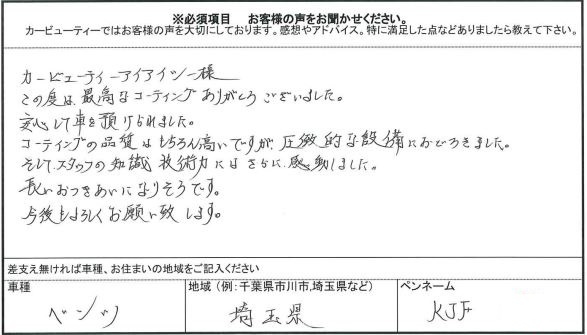 ※必須項目　お客様の声をお聞かせください。
カービューティーではお客様の声を大切にしております。感想やアドバイス。特に満足した点などありましたら教えて下さい。
カービューティーアイアイシー様
この度は、最高なコーティングありがとうございました。
安心して車を預けられました。
コーティングの品質はもちろん高いですが、圧倒的な設備におどろきました。
そして、スタッフの知識、技術力にはさらに感動しました。
長いおつきあいになりそうです。
今後もよろしくお願い致します。
差支え無ければ車種、お住まいの地域をご記入ください
車種
地域（例：千葉県市川市,埼玉県など）
ペンネーム
ベンツ
埼玉県
KJF